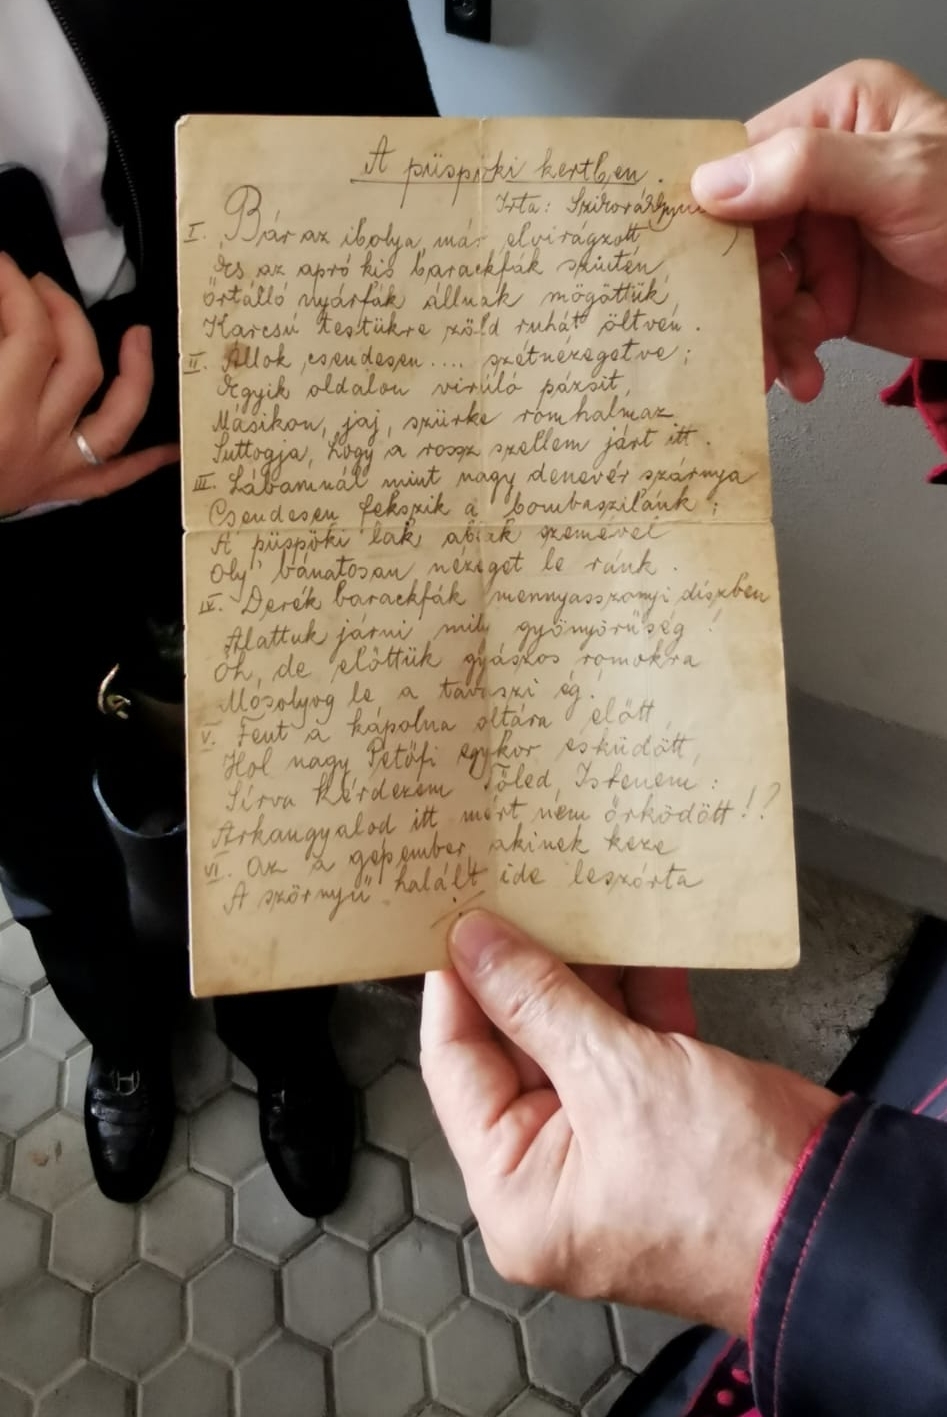 A püspöki kertben.
Irta:
I. Bár az ibolya már elvirágzott,
És az apró kis barackfák szintén,
őrtálló nyárfák állnak mögöttük,
Karcsú testükre zöld ruhát öltvén.
II. Állok csendesen .... szétnézegetve;
Egyik oldalon viruló pázsit,
Másikon, jaj, szürke romhalmaz
Suttogja, hogy a rossz szellem járt itt.
III. Lábamnál mint nagy denevér szárnya
Csendesen fekszik a bombaszilánk;
A püspöki lak ablak szemével
Oly bánatosan nézeget le ránk.
IV. Derék barackfák mennyasszonyi díszben
Alattuk járni mily gyönyörűség!
Óh, de előttük gyászos romokra
Mosolyog le a tavaszi ég.
V. Fent a kápolna oltára előtt,
Hol nagy Petőfi egykor esküdött,
Sírva kérdezem Tőled, Istenem:
Arkangyalod itt mért nem őrködött!?
VI. Az a gépember, akinek keze
A szörnyű halált ide leszórta